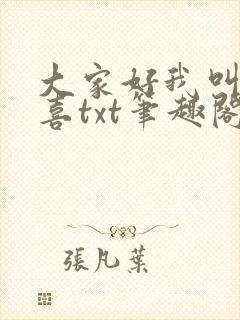 大家好我叫
喜txt笔趣阁
張凡葉